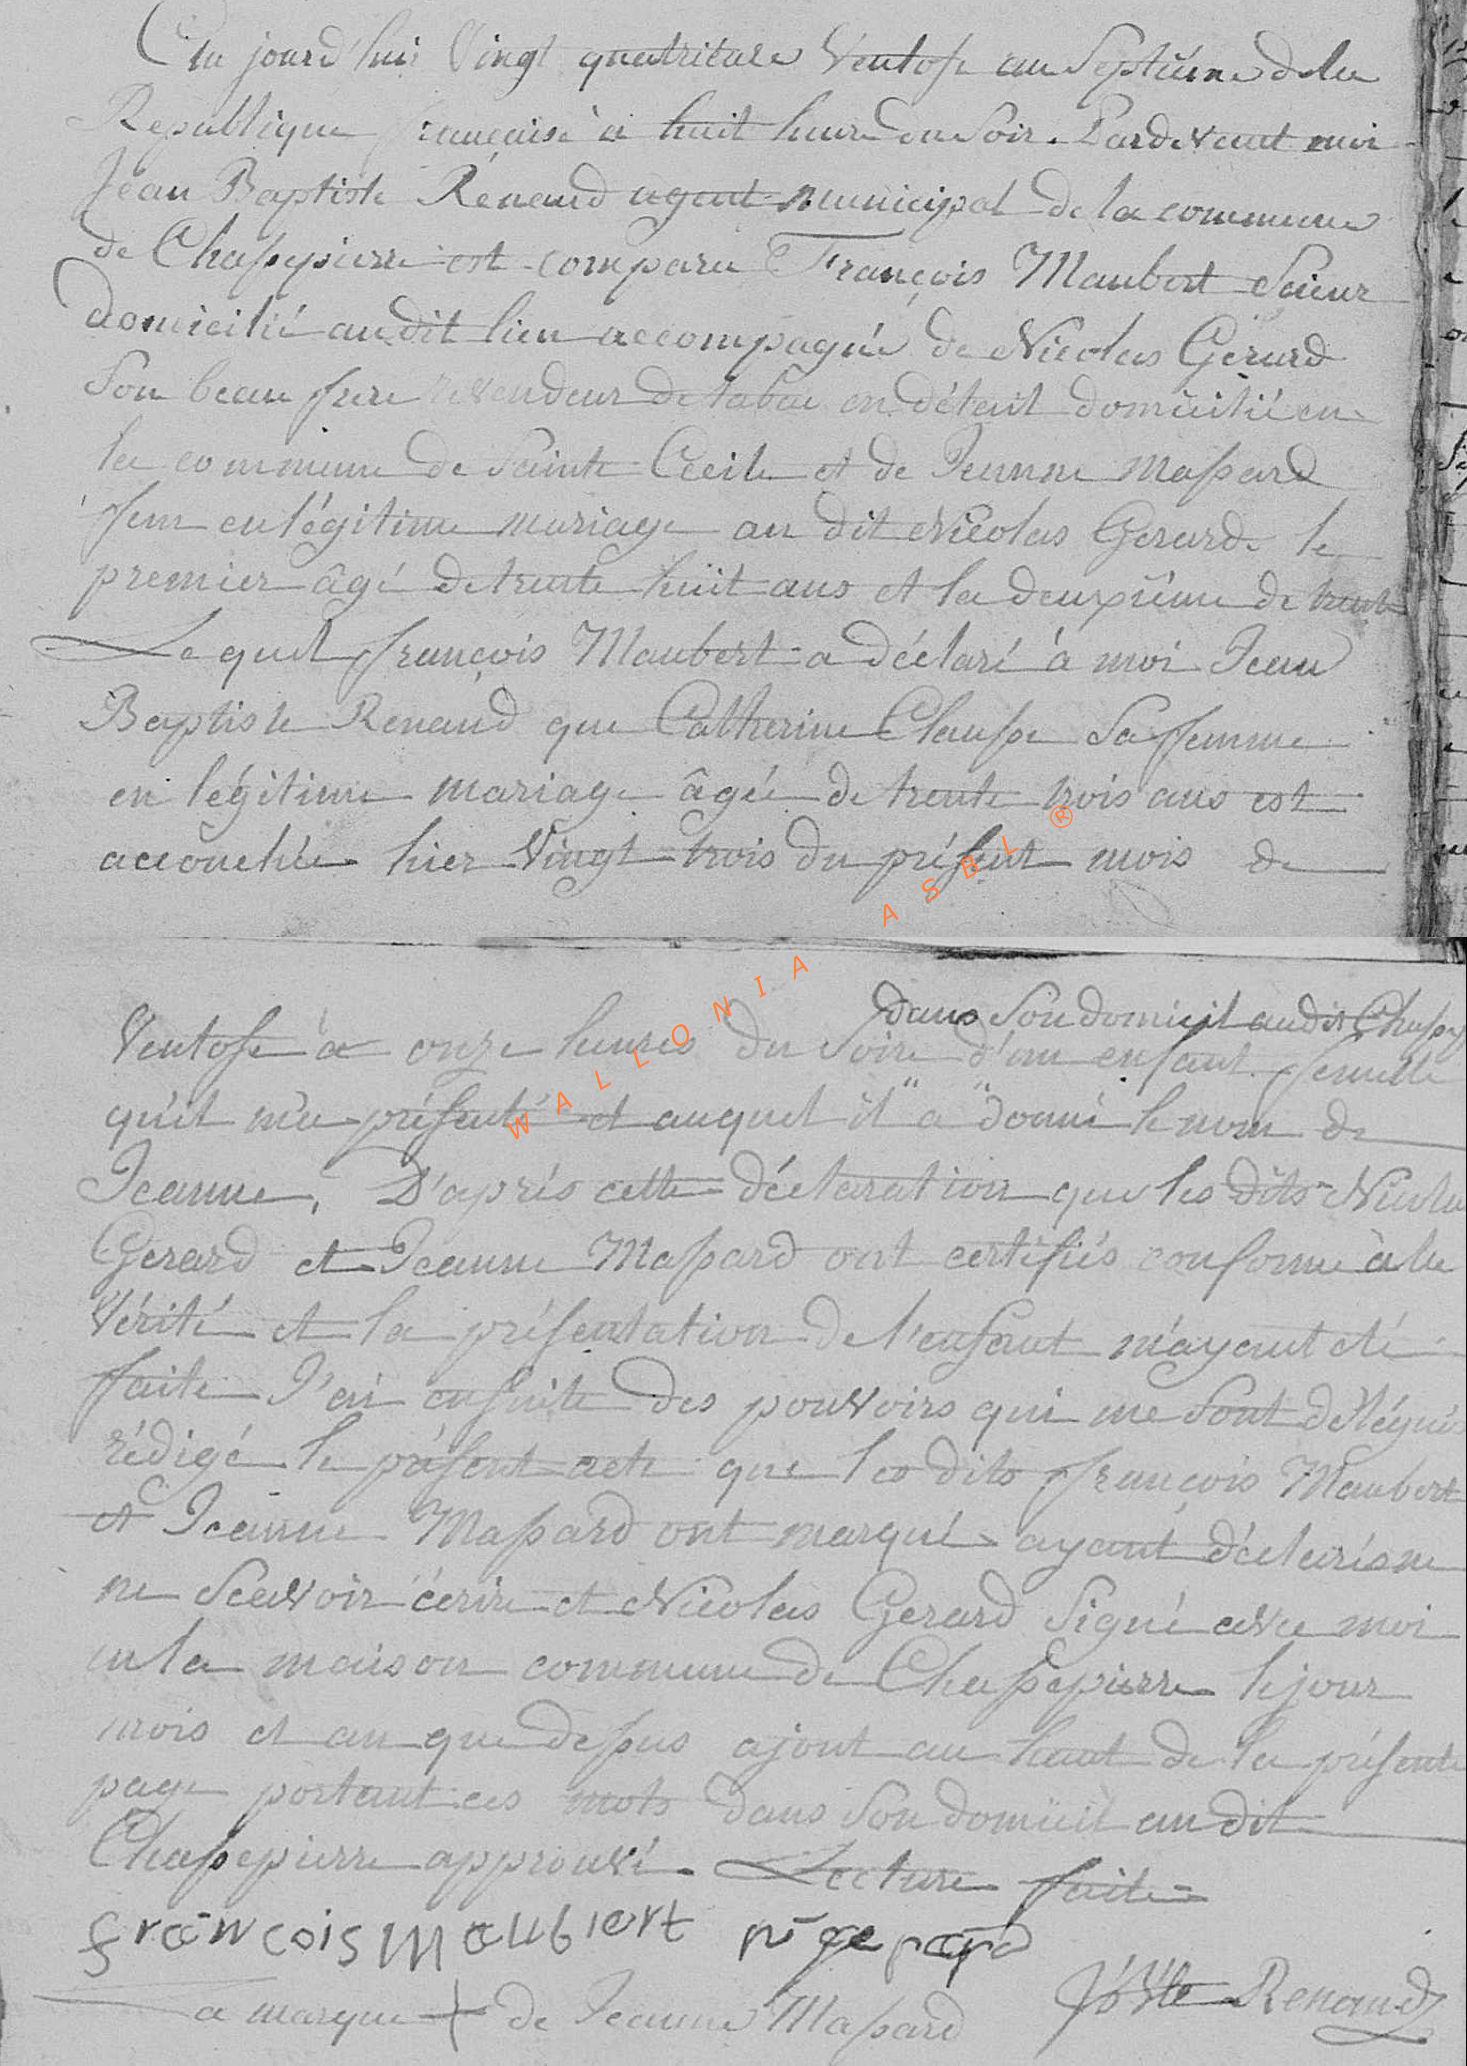 Cu jourd'hui Vingt quatrieme Ventose an Septieme dela
Republique francaise à huit heure du Soir. Pardevant moi
Jean Baptiste Renaud agent municipal de la commune
de Chassepierre est comparu François Maubert Scieur
domicilié audit lieu accompagné de Nicolas Gerard
Son beau frere revendeur de tabac en détail domicilié en
la commune de Sainte Cecile et de Jeanne Massard
fem en légitime mariage au dit Nicolas Gerard le
premier âgé de trente huit ans et la deuxième de trente
Le quel françois Maubert a déclaré à moi Jean
Baptiste Renaud que Catherine Clausse Sa femme
en légitime mariage âgée de trente trois ans est
accouchée hier Vingt trois du présent mois de
WALLONIA ASBL ®
dans Son domicil audit Chassep
Ventose à onze heures du Soire d'un enfant femelle
qu'il m'a présenté et auquel il a donné le nom de
Jeanne, D'après cette déclaration que les dits Nicola
Gerard et Jeanne Massard ont certifiés conforme à la
Vérité et la présentation de l'enfant m'ayant été
faite J'ai ensuite des pouvoirs qui me Sont délégués
rédigé le présent acte que les dits françois Maubert
et Jeanne Massard ont marqué ayant déclarés ne
ne Scavoir écrire et Nicolas Gerard Signé avec moi
en la maison commune de Chassepierre le jour
mois et an que dessus ajout au haut de la présente
page portant ces mots dans Son domicil au dit
Chassepierre approuvé. Lecture faite
francois Maubiert
a marque + de Jeanne Massard
JBte Renaud